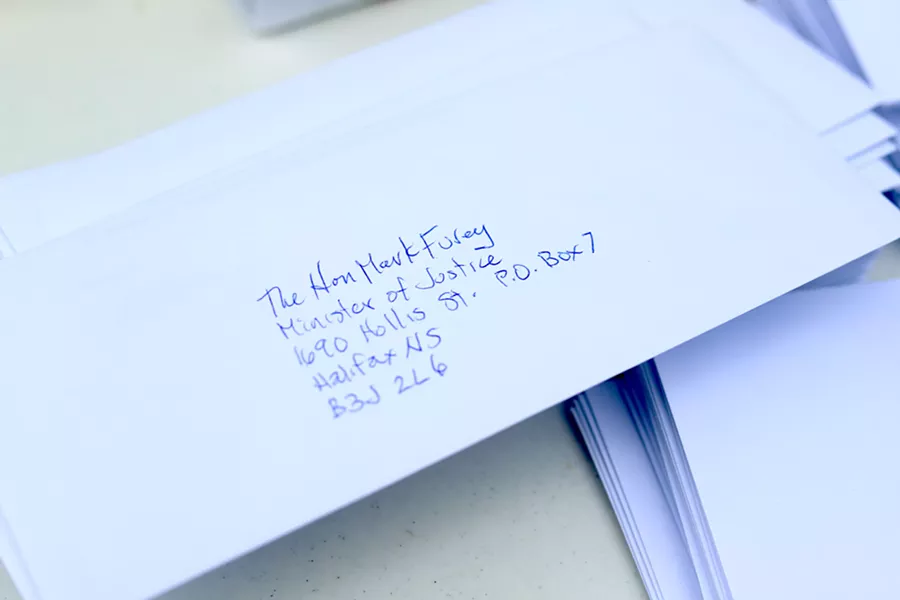 The Hon Mark Furey
Minister of Justice
1690 Hollis St. P.O. Box 7
Halifax NS
B3J 2L6